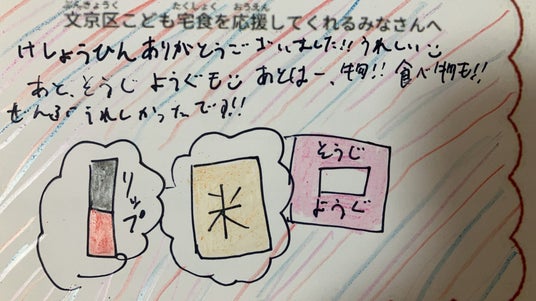 ぶんきょうく たくしょく おうえん
文京区こども宅食を応援してくれるみなさんへ
けしょうひん ありがとうございました!! うれしい
あと、そうじ ようぐも あとはー、 食べ物も!!
ぜんぶ うれしかったです!!
リップ
米
そうじ
ようぐ